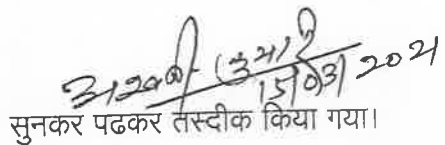 15/03/2021
सुनकर पढकर तस्दीक किया गया।